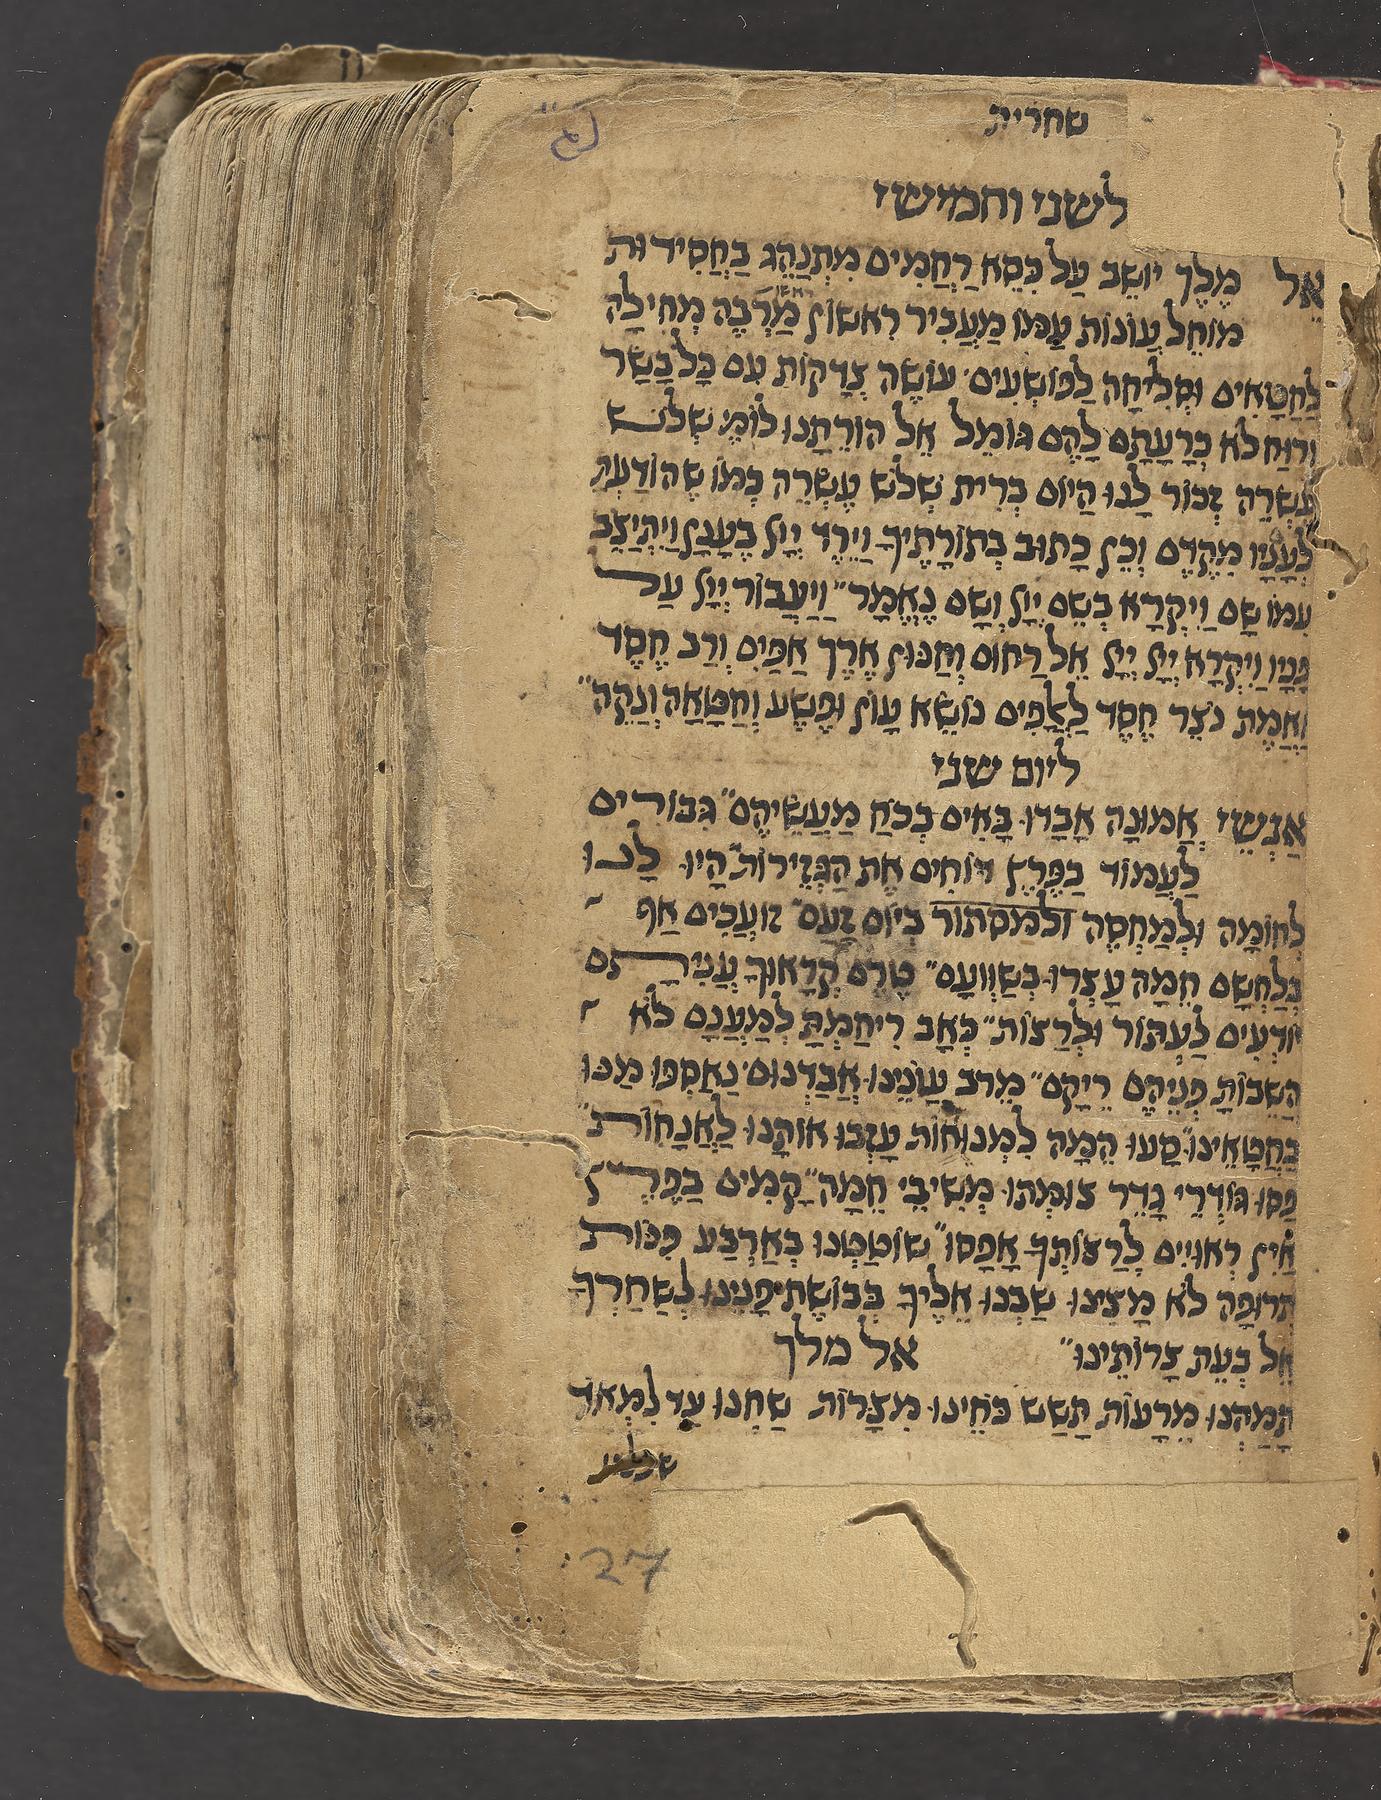 שחרית
נג
לשני וחמישי
אֵל מֶלֶךְ יוֹשֵׁב עַל כִּסֵּא רַחֲמִים מִתְנַהֵג בַּחֲסִידוּת
מוֹחֵל עֲוֹנוֹת עַמּוֹ מַעֲבִיר רִאשׁוֹן מַרְבֶּה מְחִילָה
ראשון
לַחַטָּאִים וּסְלִיחָה לַפּוֹשְׁעִים עוֹשֶׂה צְדָקוֹת עִם כָּל בָּשָׂר
וְרוּחַ לֹא כְרָעָתָם לָהֶם גּוֹמֵל אֵל הוֹרֵתָנוּ לוֹמַ שְׁלֹשׁ
עֶשְׂרֵה זְכוֹר לָנוּ הַיּוֹם בְּרִית שְׁלֹשׁ עֶשְׂרֵה כְּמוֹ שֶׁהוֹדַעְתָּ
לְעָנָיו מִקֶּדֶם וְכֵן כָּתוּב בְּתוֹרָתֶיךָ וַיֵּרֶד יְיָ בֶּעָנָן וַיִּתְיַצֵּב
עִמּוֹ שָׁם וַיִּקְרָא בְשֵׁם יְיָ וְשָׁם נֶאֱמָר וַיַּעֲבוֹר יְיָ עַל
פָּנָיו וַיִּקְרָא יְיָ יְיָ אֵל רַחוּם וְחַנּוּן אֶרֶךְ אַפַּיִם וְרַב חֶסֶד
וֶאֱמֶת נֹצֵר חֶסֶד לַאֲלָפִים נוֹשֵׂא עָוֹן וּפֶשַׁע וְחַטָּאָה וְנַקֵּה
ליום שני
אַנְשֵׁי אֲמוּנָה אָבָדוּ בָּאִים בְּכֹחַ מַעֲשֵׂיהֶם גִּבּוֹרִים
לַעֲמוֹד בַּפֶּרֶץ דּוֹחִים אֶת הַגְּזֵירוֹת הָיוּ לָנוּ
לְחוֹמָה וּלְמַחְסֶה ולמסתור בְּיוֹם זַעַם זוֹעֲכִים אַף
בְּלַחֲשָׁם חֵמָה עָצְרוּ בְּשַׁוְּועָם טֶרֶם קְרָאוּךָ עֲנִיתָם
יוֹדְעִים לַעְתּוֹר וּלְרַצּוֹת כְּאָב רִיחַמְתָּ לְמַעֲנָם לֹא
הֲשֵׁבוֹתָ פְּנֵיהֶם רֵיקָם מֵרֹב עֲוֹנֵינוּ אֲבַדְנוּם נֶאֶסְפוּ מִנּוּ
בַּחֲטָאֵינוּ סָעוּ הֵמָּה לִמְנוּחוֹת עָזְבוּ אוֹתָנוּ לַאֲנָחוֹת
פַּסּוּ גּוֹדְרֵי גָדֵר צומְּתוּ מְשִׁיבֵי חֵמָה קָמִים בַּפֶּרֶץ
אַיִן רְאוּיִים לְרַצּוֹתְךָ אָפֵסוּ שׁוֹטַטְנוּ בְּאַרְבַּע פִּנּוֹת
תְּרוּפָה לֹא מָצִינוּ שַׁבְנוּ אֵלֶיךָ בְּבוֹשֶׁת פָּנֵינוּ לְשַׁחֲרְךָ
אֵל בְּעֵת צָרוֹתֵינוּ אל מלך
תָּמַהְנוּ מֵרָעוֹת תָּשַׁשׁ כֹּחֵינוּ מִצָּרוֹת שַׁחְנוּ עַד לִמְאֹד
27